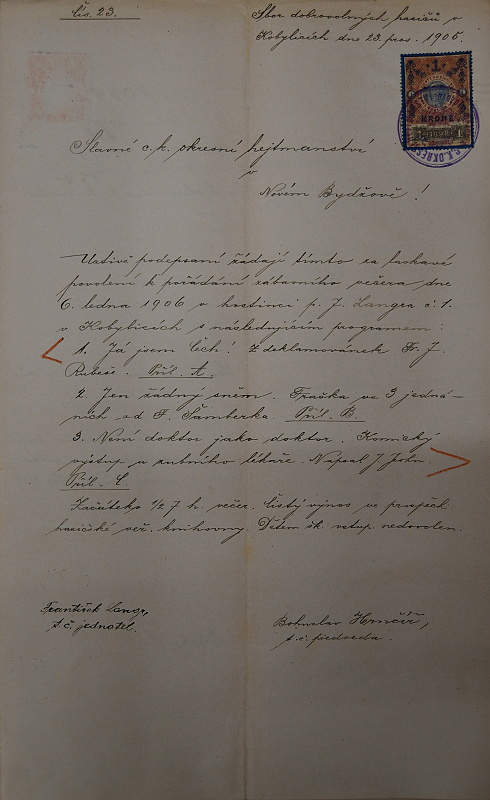 Čís. 23.
Sbor dobrovolných hasičů v
Kobylicích dne 23. pros. 1905.
1
KRONE
1 1898 1
C.K. OKRES
Slavné c. k. okresní hejtmanství
v
Novém Bydžově!
Uctivě podepsaní žádají tímto za laskavé
povolení k pořádání zábavního večera dne
6. ledna 1906 v hostinci p. J. Langra č. 1.
v Kobylicích s následujícím programem:
1. Já jsem Čech! Z deklamovánek Fr. J.
Rubeš. Příl. A.
2. Jen žádný sněm. Fraška ve 3 jedná-
ních od F. Šamberka. Příl. B.
3. Není doktor jako doktor. Komický
výstup u zubního lékaře. Napsal J. John.
Příl. C.
Začátek o 1/2 7 h. večer. Čistý výnos ve prospěch
hasičské veř. knihovny. Dětem šk. vstup nedovolen.
František Langr,
t. č. jednatel.
Bohuslav Hrnčíř,
t. č. předseda.